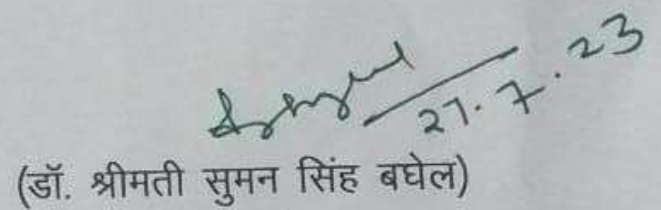 27.7.23
(डॉ. श्रीमती सुमन सिंह बघेल)